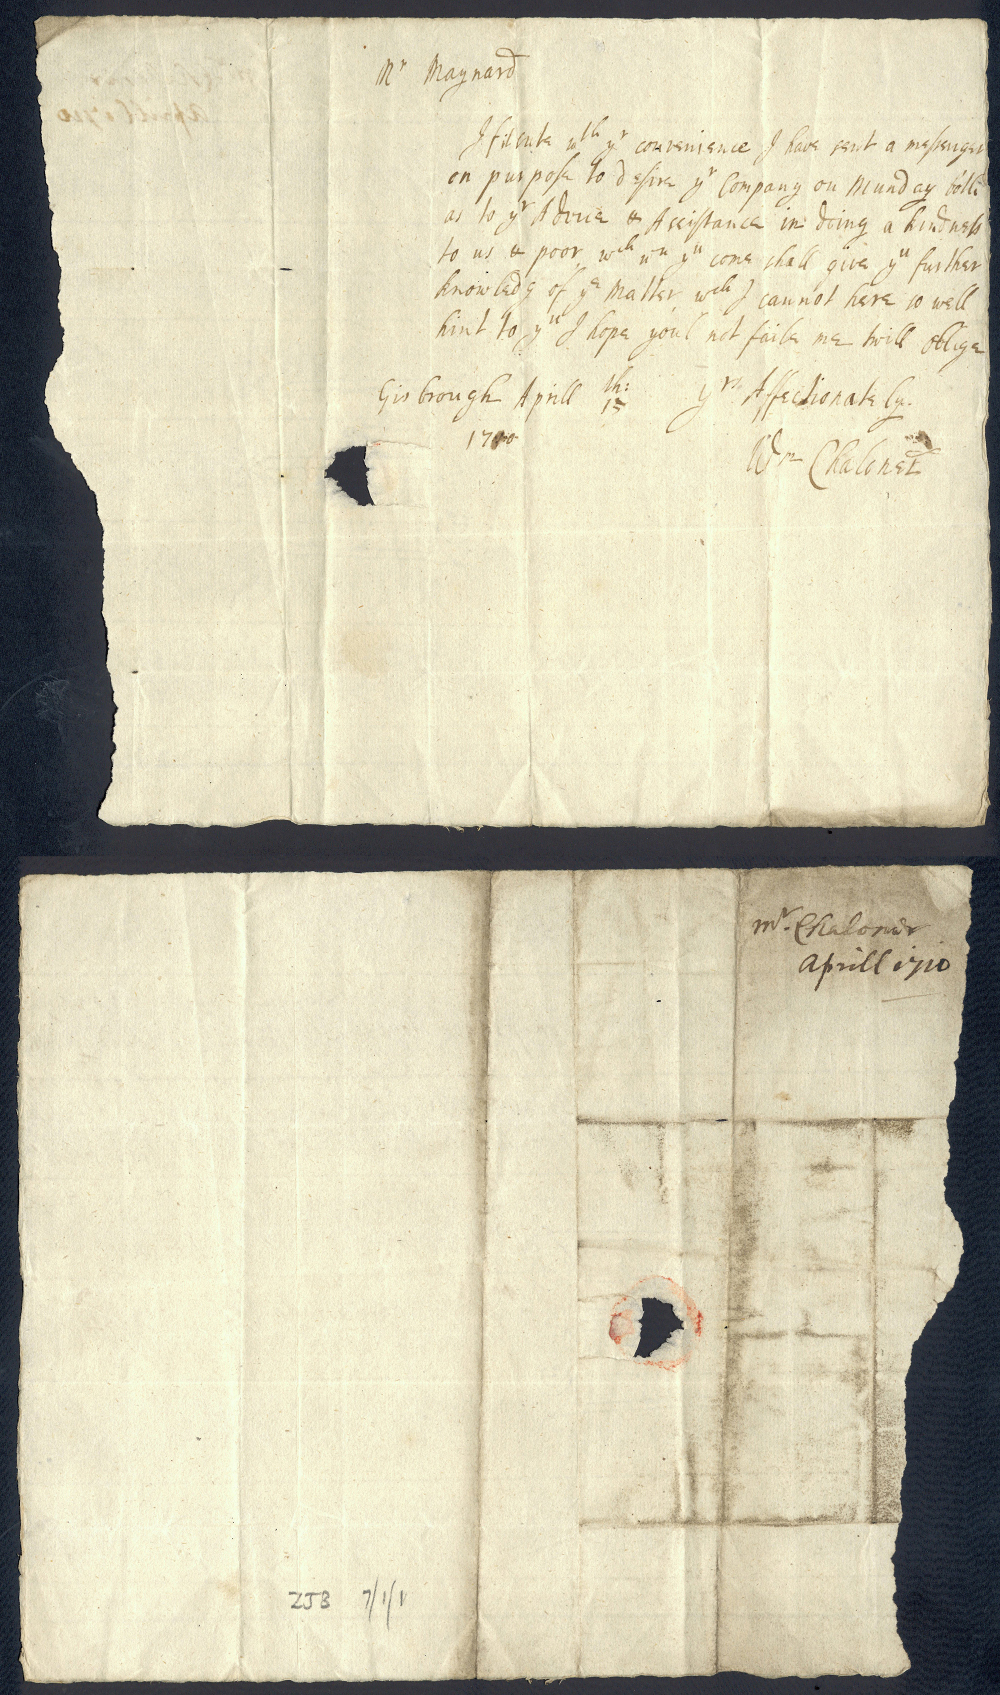 Mr Maynard
If it sute wth yr convenience I have sent a messenger
on purpose to desire yr Company on Munday both
as to yr Advice & Assistance in doing a kindness
to us & poor, wch wn yu come shall give yu further
knowledg of ye Matter wch I cannot here so well
hint to yu I hope youl not faile me twill oblige
yrs Affectionately.
Gisbrough Aprill th: 15
1710
Wm Chaloner
mr. Chaloner
Aprill 1710
ZJB 7/1/1